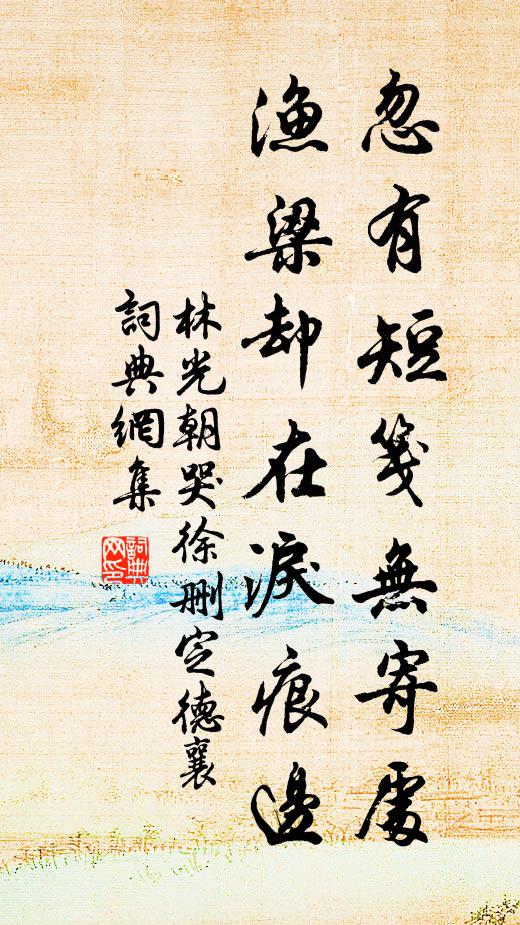 忽有短箋無寄處
漁梁却在淚痕邊
林光朝哭徐刪定德襄
詞典網集
詞典网印